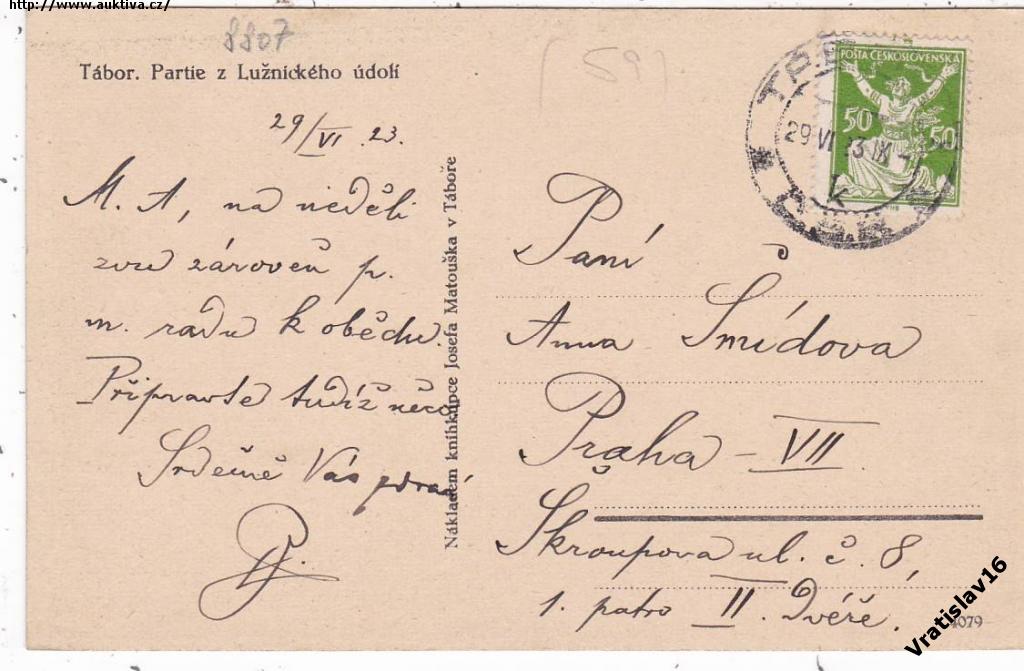 http://www.auktiva.cz/
8807
(59)
Tábor. Partie z Lužnického údolí
29/VI. 23.
M. A, na neděli
zvu zároveň p.
m. radu k obědu.
Připravte tudíž něco
Srdečně Vás zdraví
Nákladem knihkupce Josefa Matouška v Táboře
POŠTA ČESKOSLOVENSKA
50 50
29 VI 23 IX
k
Paní
Anna Šmídova
Praha – VII.
Škroupova ul. č. 8,
1. patro II. Dvéře.
4079
Vratislav16